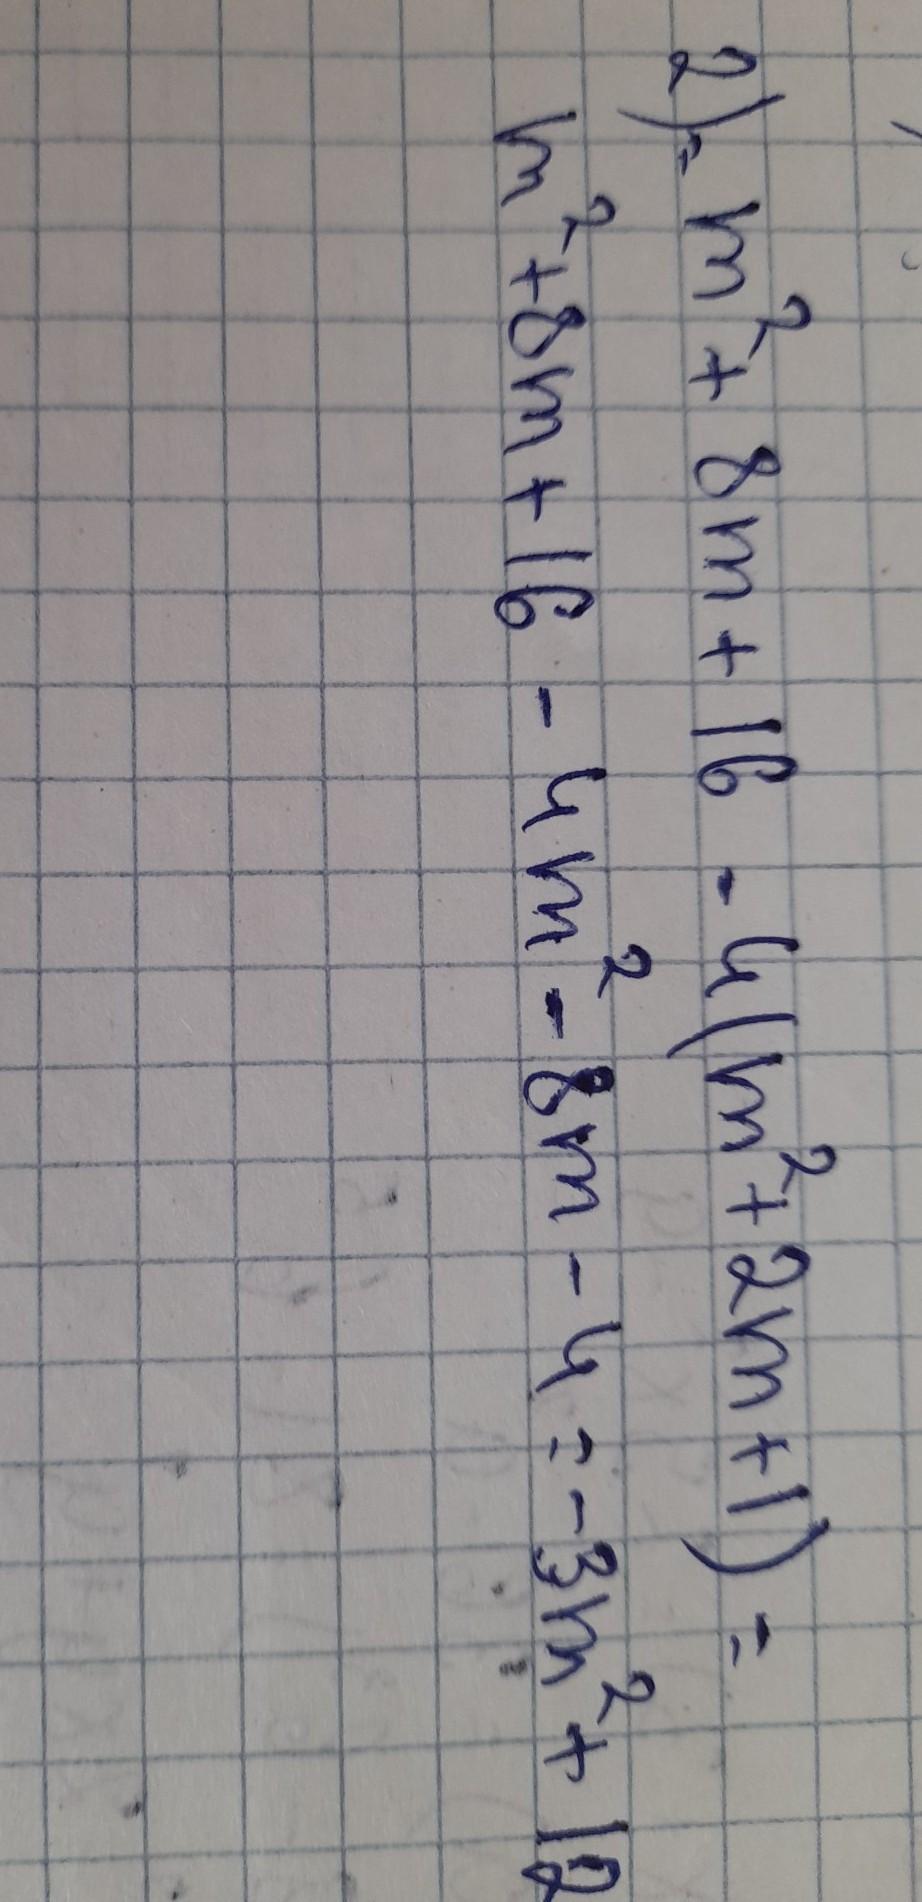 2) = m² + 8m + 16 - 4(m² + 2m + 1) =
m² + 8m + 16 - 4m² - 8m - 4 = -3m² + 12